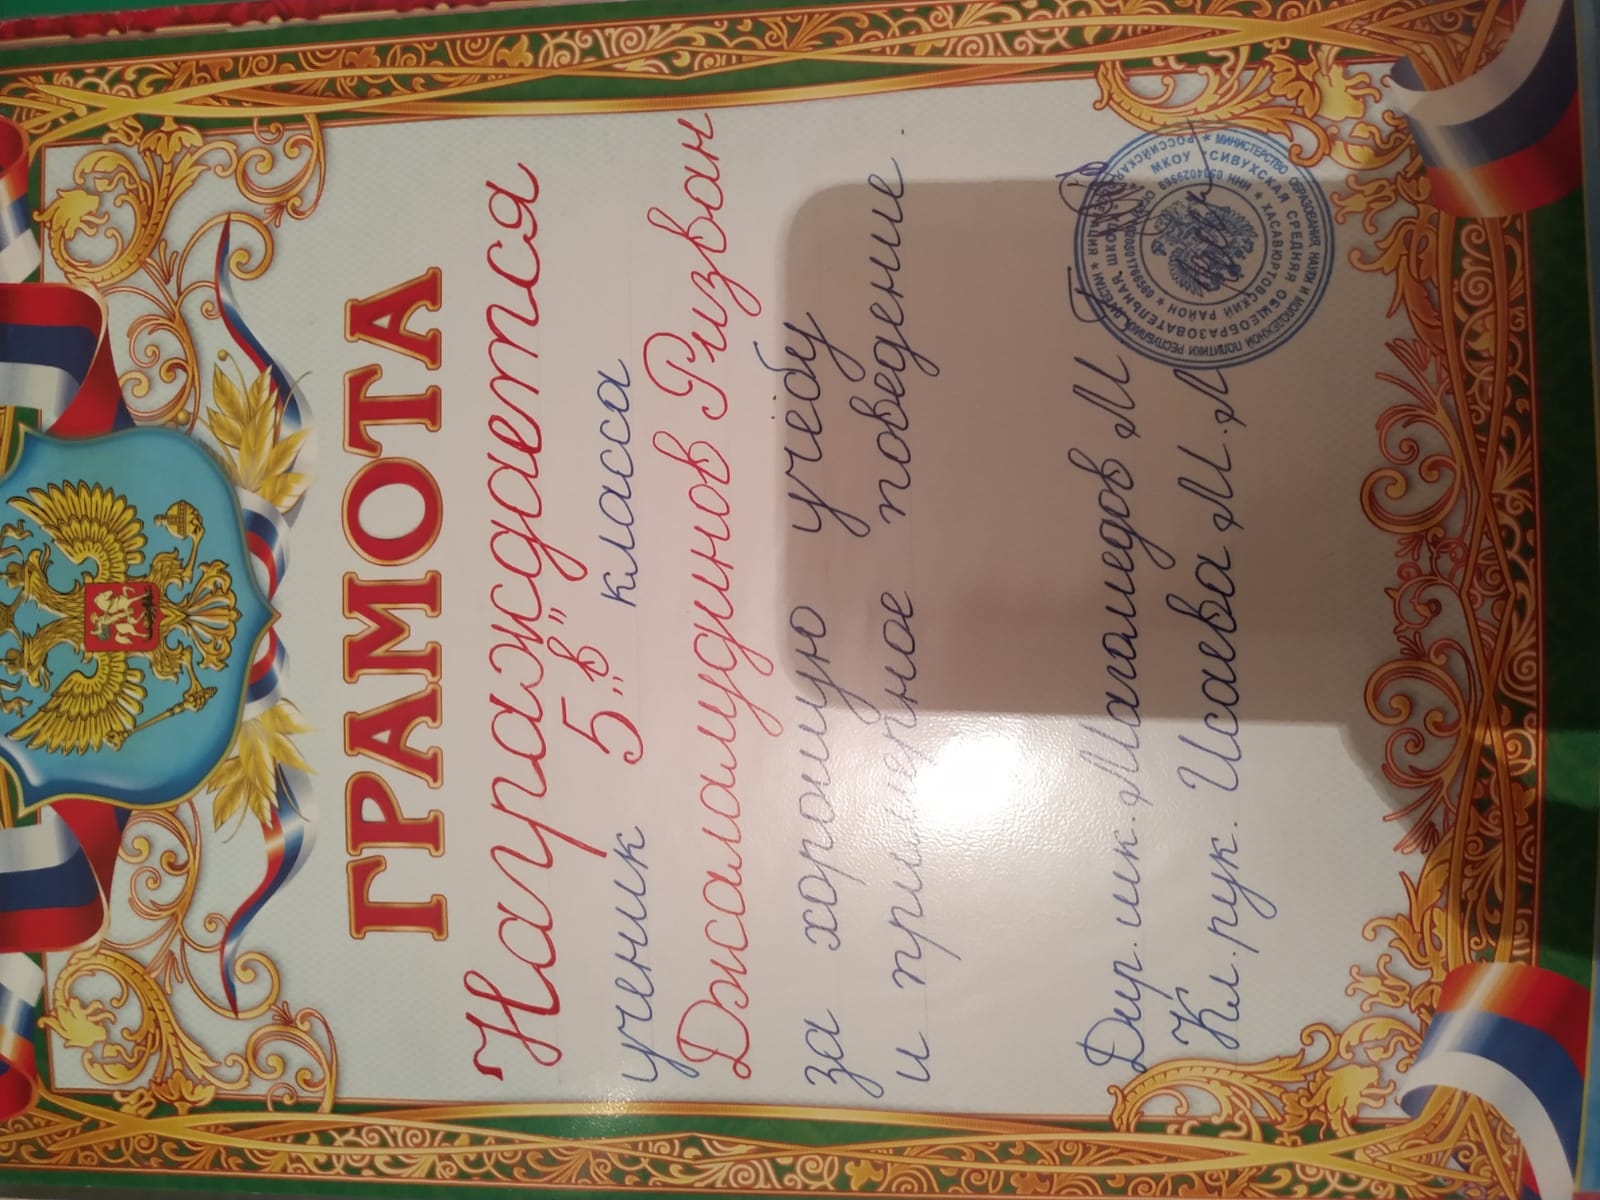 ГРАМОТА
Награждается
ученик 5 "в" класса
Джамалудинов Ризван
за хорошую учёбу
и примерное поведение.
Дир. шк. Магомедов М
Кл. рук. Исаева М. М
МИНИСТЕРСТВО ОБРАЗОВАНИЯ, НАУКИ И МОЛОДЕЖНОЙ ПОЛИТИКИ РЕСПУБЛИКИ ДАГЕСТАН * РОССИЙСКАЯ ФЕДЕРАЦИЯ *
МКОУ "СИВУХСКАЯ СРЕДНЯЯ ОБЩЕОБРАЗОВАТЕЛЬНАЯ ШКОЛА"
* ХАСАВЮРТОВСКИЙ РАЙОН * ИНН